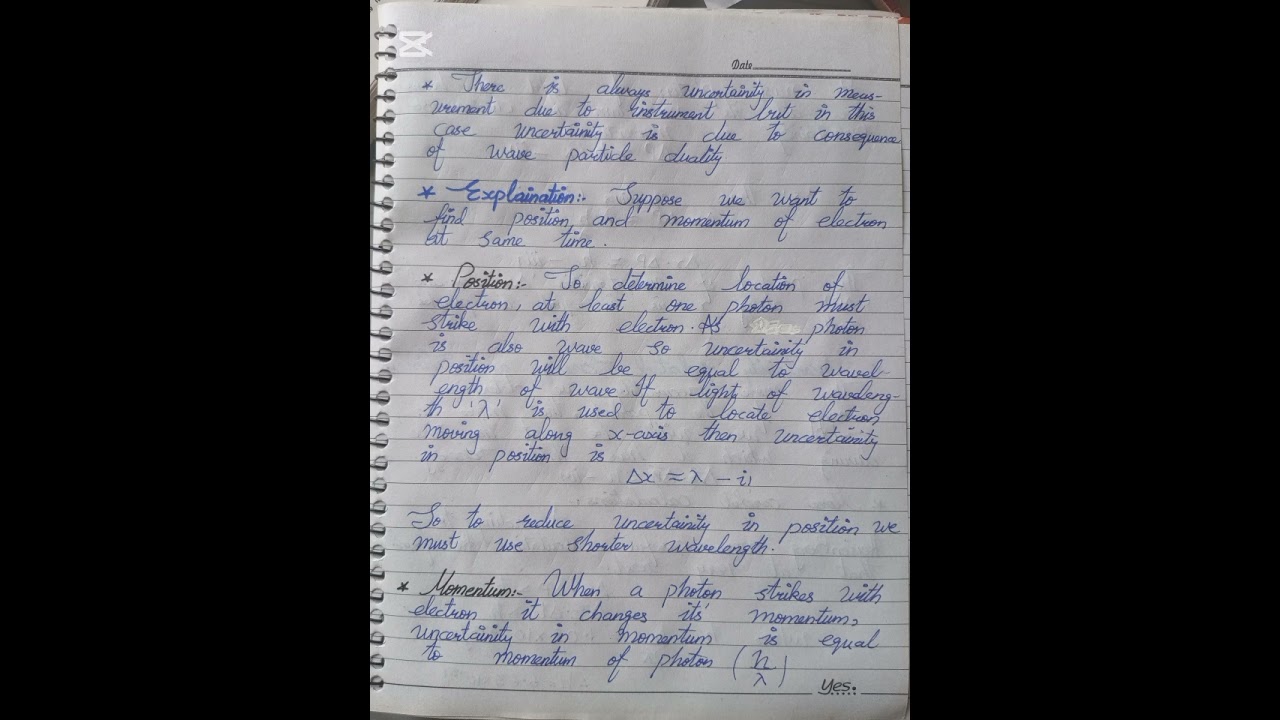 Date
* There is always uncertainity in meas-
urement due to instrument but in this
case uncertainity is due to consequence
of wave particle duality
* Explaination:- Suppose we want to
find position and momentum of electron
at same time.
* Position:- To determine location of
electron, at least one photon must
strike with electron. As photon
is also wave so uncertainity in
position will be equal to wavel-
ength of wave. If light of waveleng-
th 'λ' is used to locate electron
moving along x-axis then uncertainity
in position is
Δx ≈ λ - i,
So to reduce uncertainity in position we
must use shorter wavelength.
* Momentum:- When a photon strikes with
electron it changes its' momentum,
uncertainity in momentum is equal
to momentum of photon (h/λ)
Yes.